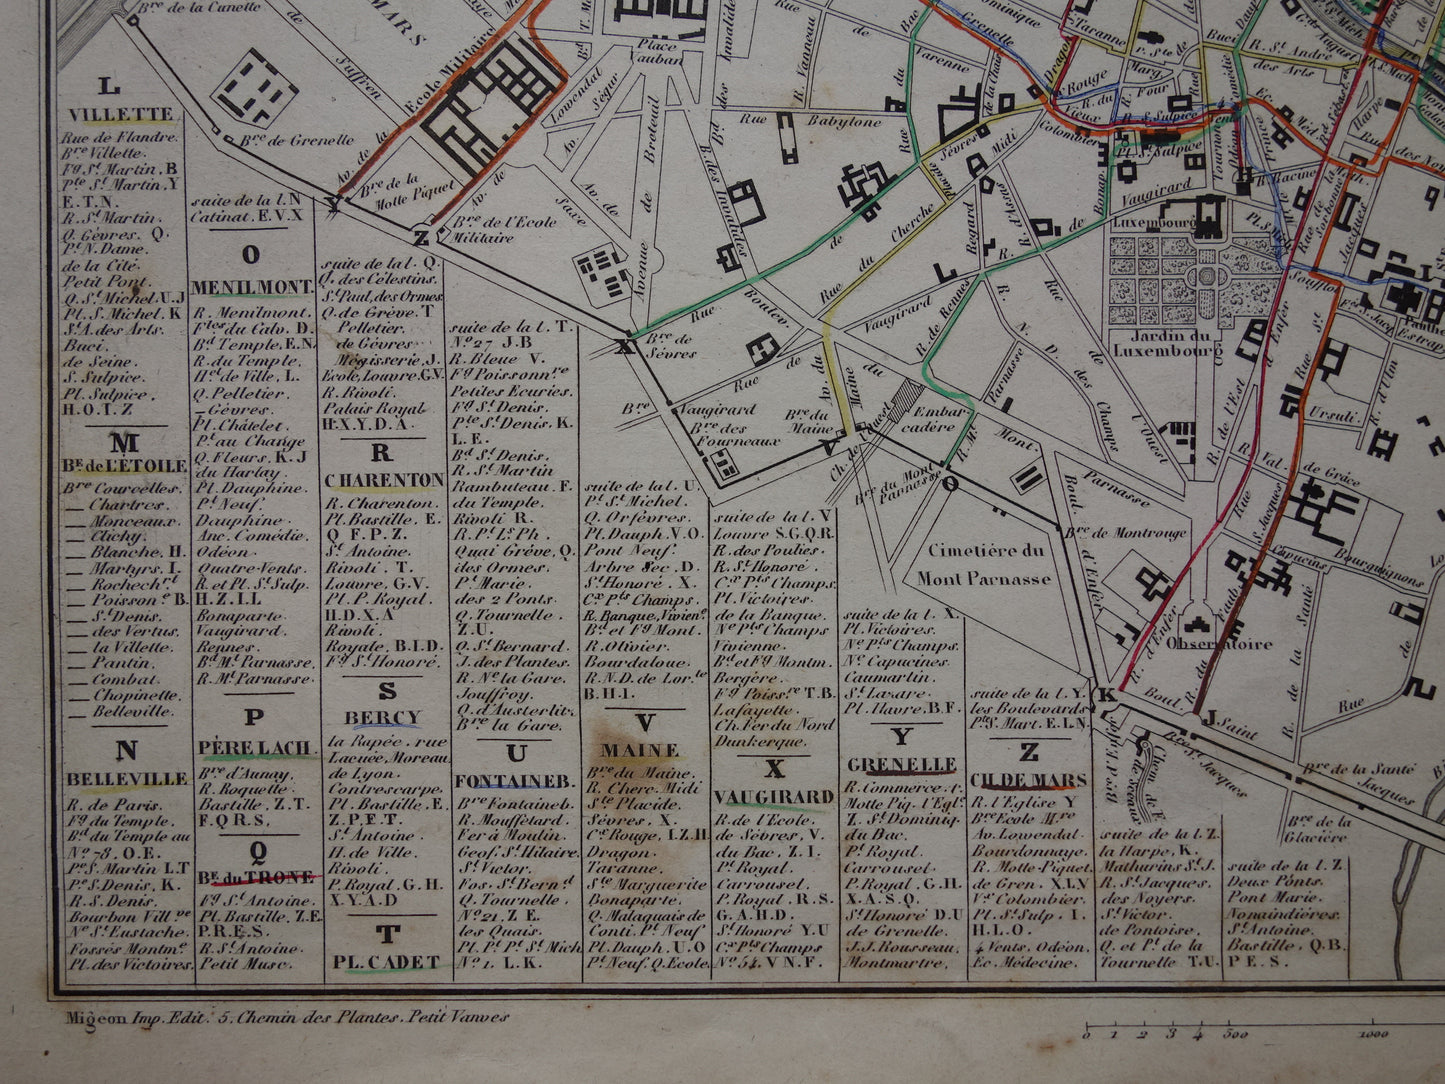 L
VILLETTE
Rue de Flandre.
Bre Villette.
Fg St Martin. B
Pte St Martin, Y
E.T.N.
R. St Martin.
Q. Gèvres. Q.
Pt N. Dame.
de la Cité.
Petit Pont.
Q. St Michel. U.J
Pl. S. Michel. K
St A. des Arts.
Buci.
de Seine.
S. Sulpice.
Pl. Sulpice.
H.O.I.Z
M
Be de L'ÉTOILE
Bre Courcelles.
— Chartres.
— Monceaux.
— Clichy.
— Blanche. H.
— Martyrs. I.
— Rochechrt
— Poissonre B.
— St Denis.
— des Vertus.
— la Villette.
— Pantin.
— Combat.
— Chopinette.
— Belleville.
N
BELLEVILLE
R. de Paris.
Fg du Temple.
Bd du Temple au
No 78. O.E.
Pte S. Martin L.T
Pte S. Denis, K.
R. S. Denis.
Bourbon Vill ve
Ne St Eustache.
Fossés Montme
Pl. des Victoires.
suite de la l. N
Catinat. E.V.X
O
MENILMONT.
R. Menilmont.
Ftes du Calv. D.
Bd Temple. E.N.
R. du Temple.
Hel de Ville, L.
Q. Pelletier.
— Gèvres.
Pl. Châtelet.
Pt au Change
Q. Fleurs. K.J
du Harlay.
Pl. Dauphine.
Pt Neuf.
Dauphine.
Anc. Comédie.
Odéon.
Quatre-Vents.
R. et Pl. St Sulp.
H.Z.I.L
Bonaparte.
Vaugirard.
Rennes.
Bd Mt Parnasse.
R. Mt Parnasse.
P
PÈRE LACH.
Bre d'Aunay.
R. Roquette.
Bastille. Z.T.
F.Q.R.S.
Q
Be du TRONE
Fg St Antoine.
Pl. Bastille, Z.E.
P.R.E.S.
R. St Antoine.
Petit Musc.
suite de la l. Q
Q. des Célestins.
St Paul, des Ormes
Q. de Grève. T
Pelletier.
de Gèvres.
Mégisserie, J.
Ecole, Louvre. G.V.
R. Rivoli.
Palais Royal
H.X.Y.D.A.
R
CHARENTON
R. Charenton.
Pl. Bastille. E.
Q F.P.Z.
St Antoine.
Rivoli. T.
Louvre, G.V.
Pl. P. Royal.
H.D.X.A
Rivoli.
Royale, B.I.D.
Fg St Honoré.
S
BERCY
la Rapée. rue
Lacuée, Moreau.
de Lyon.
Contrescarpe.
Pl. Bastille. E.
Z.P.F.T.
St Antoine.
H. de Ville.
Rivoli.
P. Royal. G.H.
X.Y.A.D
T
PL. CADET
suite de la l. T.
No 27 J.B
R. Bleue V.
Fg Poissonnre
Petites Ecuries.
Fg St Denis.
Pte St Denis. K.
L.E.
Bd St Denis.
R. St Martin
Rambuteau. F.
du Temple.
Rivoli R.
R. Pt Ls Ph.
Quai Grève, Q.
des Ormes.
Pt Marie.
des 2 Ponts.
Q. Tournelle.
Z.U.
Q. St Bernard.
J. des Plantes.
R. Ne la Gare.
Jouffroy.
Q. d'Austerlitz.
Bre la Gare.
U
FONTAINEB.
Bre Fontaineb.
R. Mouffetard.
Fer à Moulin.
Geof. St Hilaire.
St Victor.
Fos. St Bernd
Q. Tournelle.
No 21. Z E.
les Quais.
Pl. Pt Pt St Mich.
No 1. L.K.
suite de la l. U.
Pt St Michel.
Q. Orfèvres.
Pl. Dauph. V.O.
Pont Neuf.
Arbre Sec. D.
St Honoré. X.
Cx Pts Champs.
R. Banque, Vivienne
Bd et Fg Mont.
R. Olivier.
Bourdaloue.
R. N.D. de Lor.te
B.H.I.
V
MAINE
Bre du Maine.
R. Cherc. Midi
Ste Placide.
Sèvres, X.
Cx Rouge, I.Z.H.
Dragon.
Taranne.
Ste Marguerite
Bonaparte.
Q. Malaquais de
Conti. Pt Neuf
Pl. Dauph. U.O
Pt Neuf. Q. Ecole.
suite de la l. V
Louvre S.G.Q.R.
R. des Poulies.
R. St Honoré.
Cx Pts Champs.
Pl. Victoires.
de la Banque.
Ne Pts Champs
Vivienne.
Bd et Fg Montm.
Bergère.
Fg Poissre T.B.
Lafayette.
Ch. Fer du Nord
Dunkerque.
X
VAUGIRARD
R. de l'Ecole.
de Sèvres, V.
du Bac, Z.I.
Pt Royal.
Carrousel.
P. Royal. R.S.
G.A.H.D.
St Honoré Y.U
Cx Pts Champs
No 54. V N.F.
suite de la l. X.
Pl. Victoires.
Ne Pts Champs.
Ne Capucines
Caumartin.
St Lazare.
Pl. Havre. B.F.
Y
GRENELLE
R. Commerce. r.
Motte Piq. l'Egl.
Z. St Dominiq.
du Bac.
Pt Royal.
Carrousel.
P. Royal. G.H.
X.A.S.Q.
St Honoré D.U
de Grenelle.
J.J. Rousseau.
Montmartre.
suite de la l. Y.
les Boulevards
Pte S. Mart. E.L.N.
Z
CH. DE MARS
R. l'Eglise Y
Bre Ecole Mre
Av. Lowendal.
Bourdonnaye.
R. Motte-Piquet.
de Gren. X.I.V
Vx Colombier.
Pl. St Sulp. I.
H.L.O.
4 Vents. Odéon.
Ec. Médecine.
suite de la l. Z.
la Harpe, K.
Mathurins St J.
R. St Jacques.
des Noyers.
St Victor.
de Pontoise.
Q. et Pt de la
Tournelle T.U.
suite de la l. Z.
Deux Ponts.
Pont Marie.
Nonaindières.
St Antoine.
Bastille, Q.B.
P E.S.
Bre de la Cunette
MARS
Suffren
Bre de Grenelle
Av. de la
Ecole Militaire
Bre de la
Motte Piquet
Y
Z
Bre de l'Ecole
Militaire
Av. de
Lowendal
Place
Vauban
Ségur
Av. de
Saxe
Avenue de Breteuil
Bd des Invalides
B. des Invalides
Rue Vanneau
Rue Babylone
Varenne
Rue du Bac
Rue de Sèvres
X
Bre de
Sèvres
Boulev.
Rue du Cherche Midi
Placide
Regard
R. d'Assas
Vaugirard
R. de Rennes
Rue de Vaugirard
Bre des
Fourneaux
Av. du Maine
Bre du
Maine
V
Ch. de
l'Ouest
Embar-
cadère
R. Mt
Bre du Mont
Parnasse
O
Mont Parnasse
R. N. D. des Champs
Rue de l'Ouest
Cimetière du
Mont Parnasse
Boul. d'Enfer
Bre de Montrouge
Dominique
Grenelle
Taranne
Dragon
Rouge
Vieux Colombier
R. du Four
R. S. Sulpice
Pl. S. Sulpice
Buci
R. St André
des Arts
Ec. Méd.
Tournon
Odéon
H
R. Racine
Luxembourg
Jardin du
Luxembourg
Rue d'Enfer
R. de l'Est
Soufflot
Panthé
Estrap
Ursuli.
R. d'Ulm
Rue St Jacques
R. Val de Grâce
Capucins
Bourguignons
Observatoire
R. d'Enfer
K
Boul.
Saint
Jacques
R. du Faub. S. Jacques
J
Bre St Jacques
R. de la Santé
Rue
Bre de la Santé
Bre de la
Glacière
Chem. de F.
de Sceaux
Bre d'Enfer
Migeon Imp. Edit. 5, Chemin des Plantes. Petit Vanves
0 1 2 3 4 500 1000